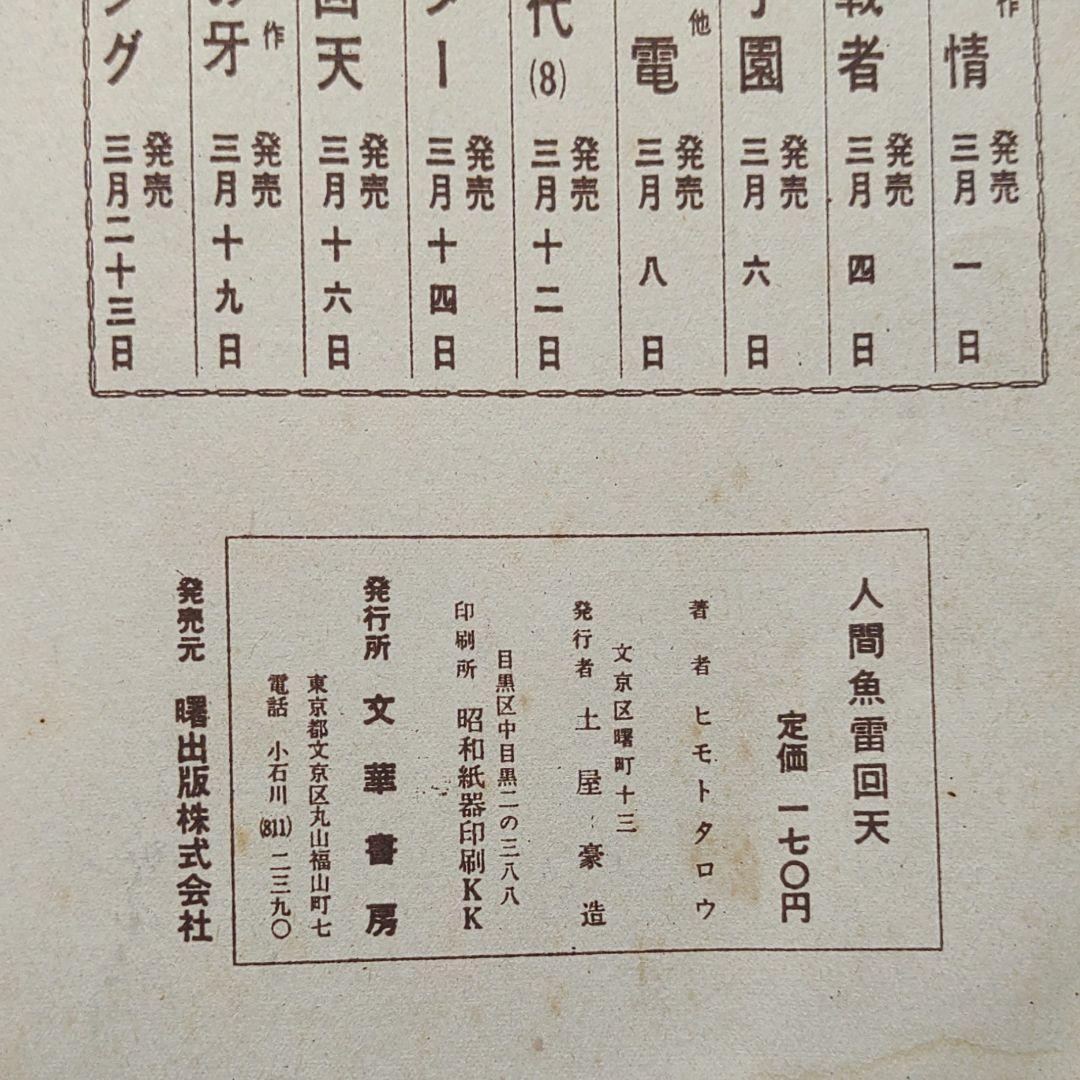 作
情
発売
三月一日
戦者
発売
三月四日
園
発売
三月六日
他
電
発売
三月八日
代(8)
発売
三月十二日
ター
発売
三月十四日
回天
発売
三月十六日
の牙
作
発売
三月十九日
ング
発売
三月二十三日
人間魚雷回天
定価 一七〇円
著者 ヒモトタロウ
文京区曙町十三
発行者 土屋豪造
目黒区中目黒二の三八八
印刷所 昭和紙器印刷KK
発行所 文華書房
東京都文京区丸山福山町七
電話 小石川(811)二三九〇
発売元 曙出版株式会社